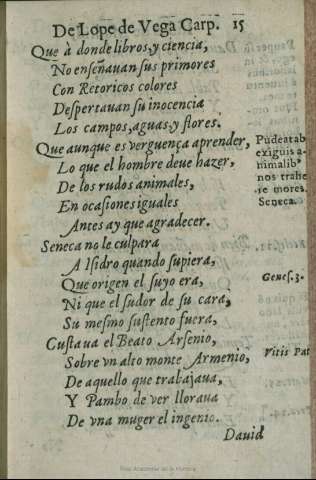 De Lope de Vega Carp. 15
Que à donde libros, y ciencia,
No enseñauan sus primores
Con Retoricos colores
Despertauan su inocencia
Los campos, aguas, y flores.
Que aunque es verguença aprender,
Lo que el hombre deue hazer,
De los rudos animales,
En ocasiones iguales
Antes ay que agradecer.
Seneca no le culpara
A Isidro quando supiera,
Que origen el suyo era,
Ni que el sudor de su cara,
Su mesmo sustento fuera,
Gustaua el Beato Arsenio,
Sobre vn alto monte Armenio,
De aquello que trabajaua,
Y Pambo de ver lloraua
De vna muger el ingenio.
Dauid
Pudeat ab
exiguis a-
nimalib9
nos trahe
re mores.
Seneca.
Genes. 3.
Vitis Pat
Real Academia de la Historia